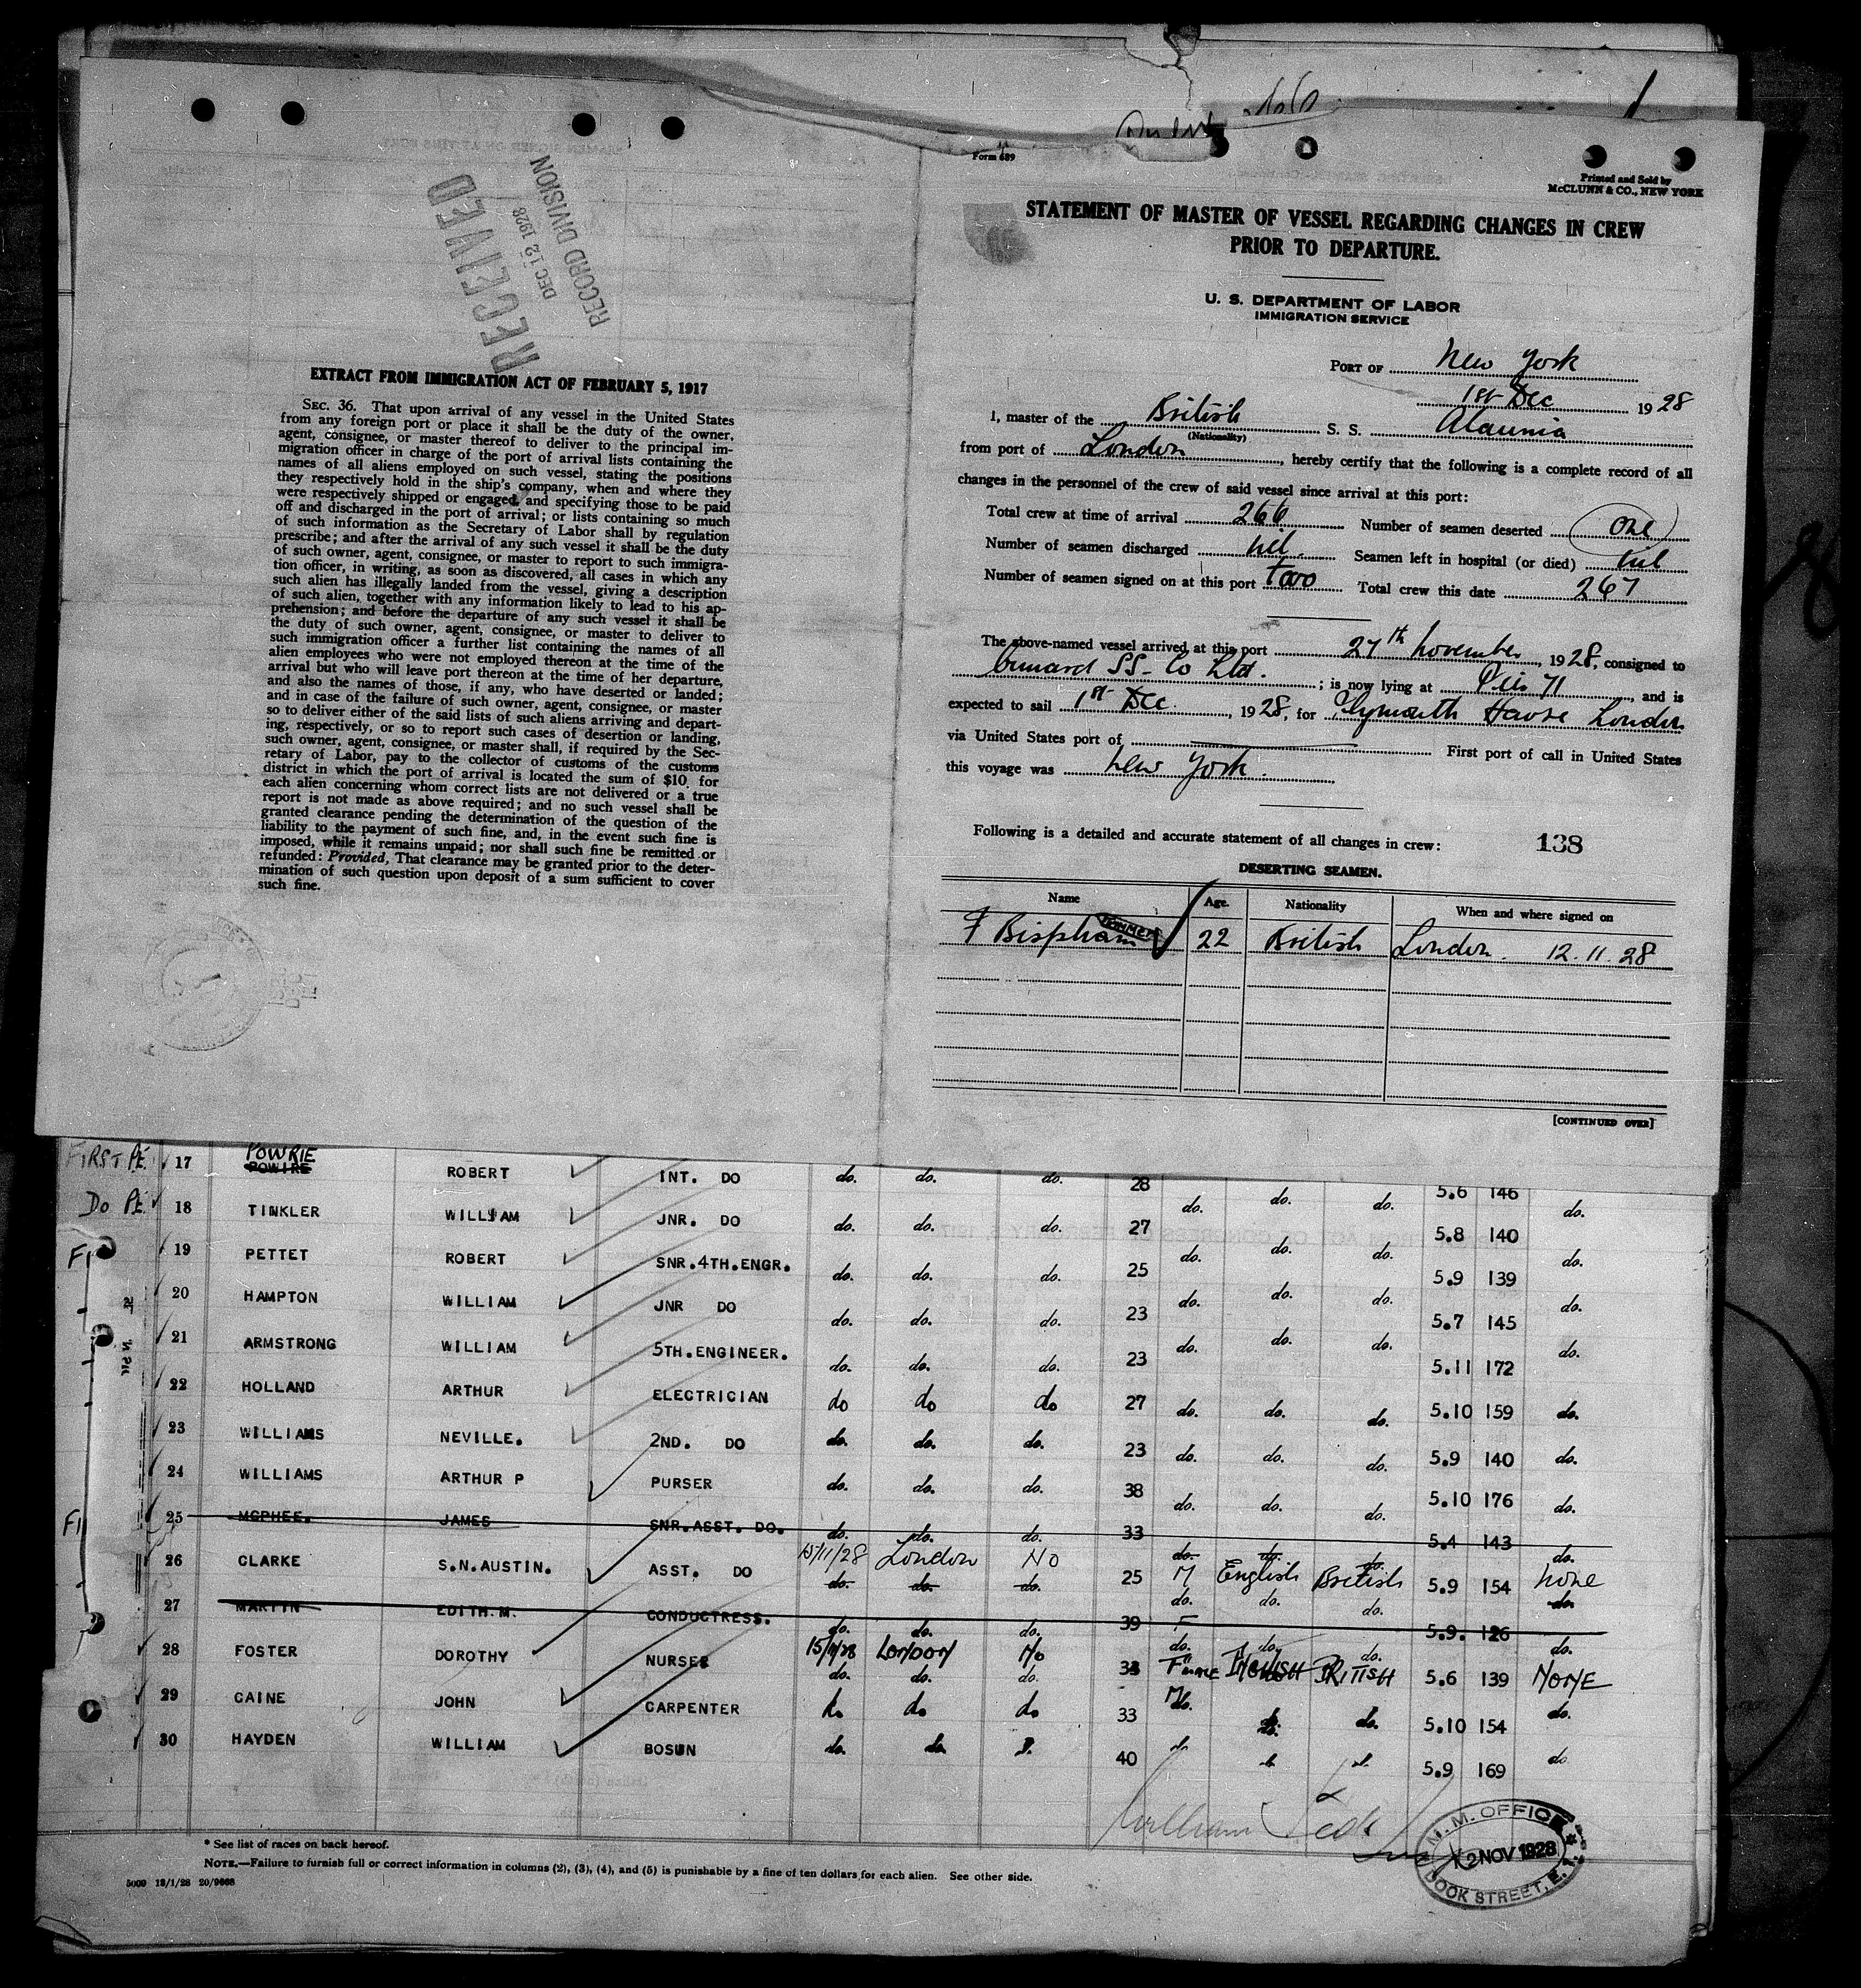 RECEIVED
DEC 12 1928
RECORD DIVISION
EXTRACT FROM IMMIGRATION ACT OF FEBRUARY 5, 1917
SEC. 36. That upon arrival of any vessel in the United States
from any foreign port or place it shall be the duty of the owner,
agent, consignee, or master thereof to deliver to the principal im-
migration officer in charge of the port of arrival lists containing the
names of all aliens employed on such vessel, stating the positions
they respectively hold in the ship's company, when and where they
were respectively shipped or engaged, and specifying those to be paid
off and discharged in the port of arrival; or lists containing so much
of such information as the Secretary of Labor shall by regulation
prescribe; and after the arrival of any such vessel it shall be the duty
of such owner, agent, consignee, or master to report to such immigra-
tion officer, in writing, as soon as discovered, all cases in which any
such alien has illegally landed from the vessel, giving a description
of such alien, together with any information likely to lead to his ap-
prehension; and before the departure of any such vessel it shall be
the duty of such owner, agent, consignee, or master to deliver to
such immigration officer a further list containing the names of all
alien employees who were not employed thereon at the time of the
arrival but who will leave port thereon at the time of her departure,
and also the names of those, if any, who have deserted or landed;
and in case of the failure of such owner, agent, consignee, or master
so to deliver either of the said lists of such aliens arriving and depart-
ing, respectively, or so to report such cases of desertion or landing,
such owner, agent, consignee, or master shall, if required by the Sec-
retary of Labor, pay to the collector of customs of the customs
district in which the port of arrival is located the sum of $10 for
each alien concerning whom correct lists are not delivered or a true
report is not made as above required; and no such vessel shall be
granted clearance pending the determination of the question of the
liability to the payment of such fine, and, in the event such fine is
imposed, while it remains unpaid; nor shall such fine be remitted or
refunded: Provided, That clearance may be granted prior to the deter-
mination of such question upon deposit of a sum sufficient to cover
such fine.
Form 689
Printed and Sold by
McCLUNN & CO., NEW YORK
STATEMENT OF MASTER OF VESSEL REGARDING CHANGES IN CREW
PRIOR TO DEPARTURE.
U. S. DEPARTMENT OF LABOR
IMMIGRATION SERVICE
PORT OF New York
1st Dec 1928
I, master of the British S. S. Alaunia
(Nationality)
from port of London, hereby certify that the following is a complete record of all
changes in the personnel of the crew of said vessel since arrival at this port:
Total crew at time of arrival 266 Number of seamen deserted One
Number of seamen discharged nil. Seamen left in hospital (or died) nil
Number of seamen signed on at this port two Total crew this date 267
The above-named vessel arrived at this port 27th November, 1928, consigned to
Cunard SS- Co Ltd.; is now lying at Pier 71, and is
expected to sail 1st Dec, 1928, for Plymouth Havre London
via United States port of First port of call in United States
this voyage was New York.
Following is a detailed and accurate statement of all changes in crew: 138
DESERTING SEAMEN.
Name Age. Nationality When and where signed on
F Bispham 22 British London. 12.11.28
[CONTINUED OVER]
FIRST PE. 17 POWRIE POWIRE ROBERT INT. DO do. do. do. 28 do. do. do. 5.6 146 do.
Do PE. 18 TINKLER WILLIAM JNR. DO do. do. do. 27 do. do. do. 5.8 140 do.
19 PETTET ROBERT SNR.4TH.ENGR. do. do. do. 25 do. do. do. 5.9 139 do.
20 HAMPTON WILLIAM JNR DO do. do. do. 23 do. do. do. 5.7 145 do.
21 ARMSTRONG WILLIAM 5TH.ENGINEER. do. do. do. 23 do. do. do. 5.11 172 do.
22 HOLLAND ARTHUR ELECTRICIAN do do do 27 do. do. do. 5.10 159 do.
23 WILLIAMS NEVILLE. 2ND. DO do. do. do. 23 do. do. do. 5.9 140 do.
24 WILLIAMS ARTHUR P PURSER do. do. do. 38 do. do. do. 5.10 176 do.
25 MCPHEE. JAMES SNR.ASST. DO. do. do. do. 33 do. do. do. 5.4 143 do.
26 CLARKE S.N.AUSTIN. ASST. DO 15/11/28 London No 25 M English British 5.9 154 None
27 MARTIN EDITH.M. CONDUCTRESS. do. do. do. 39 F do. do. 5.9. 126 do.
28 FOSTER DOROTHY NURSES 15/11/28 LONDON No 33 ENGLISH BRITISH 5.6 139 NONE
29 CAINE JOHN CARPENTER do do do 33 M do. do. 5.10 154 do.
30 HAYDEN WILLIAM BOSUN do. do. 40 5.9 169 do
William
M.M. OFFICE
12 NOV 1928
DOCK STREET, E.
* See list of races on back hereof.
NOTE.—Failure to furnish full or correct information in columns (2), (3), (4), and (5) is punishable by a fine of ten dollars for each alien. See other side.
5009 13/1/28 20/9668